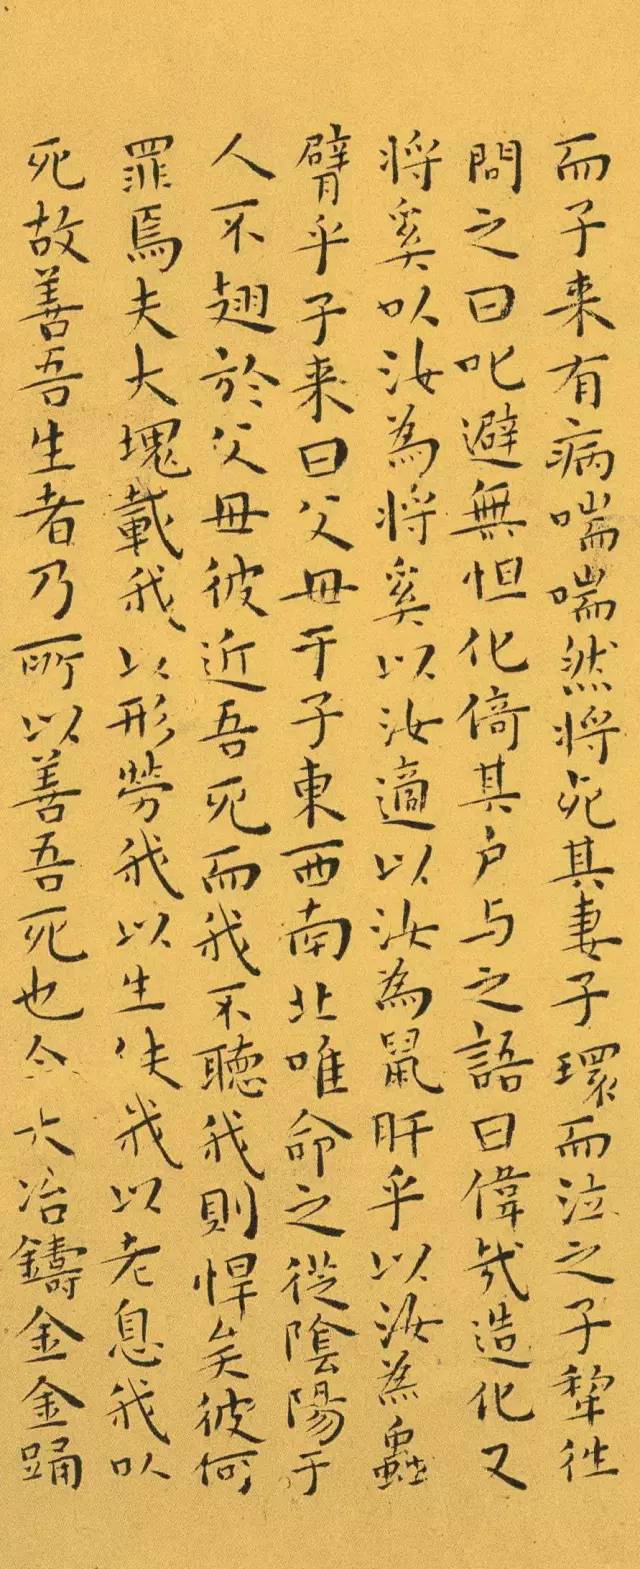 而子来有病喘喘然将死其妻子環而泣之子犂徃
問之曰叱避無怛化倚其户与之語曰偉哉造化又
将奚以汝為将奚以汝適以汝為鼠肝乎以汝為蟲
臂乎子来曰父母于子東西南北唯命之従陰陽于
人不翅於父母彼近吾死而我不聴我則悍矣彼何
罪焉夫大塊載我以形勞我以生佚我以老息我以
死故善吾生者乃所以善吾死也今大冶鑄金金踊